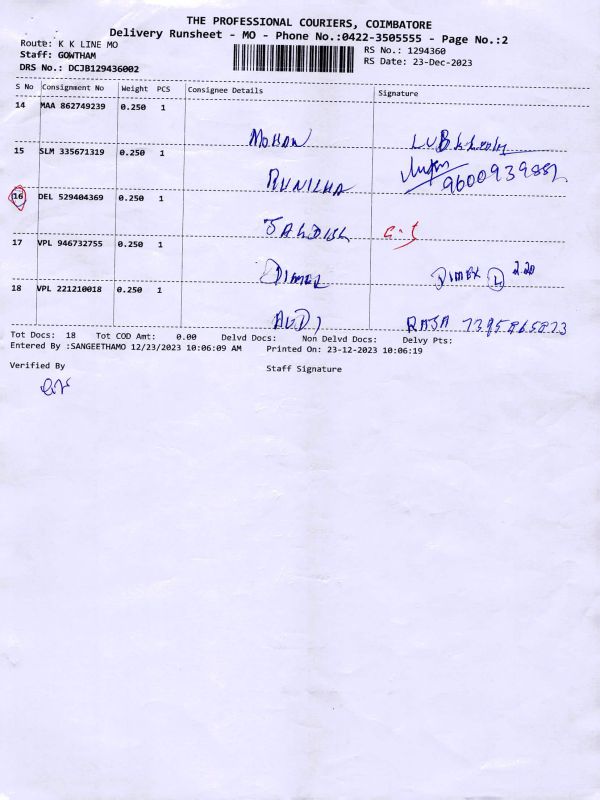 THE PROFESSIONAL COURIERS, COIMBATORE
Delivery Runsheet - MO - Phone No.:0422-3505555 - Page No.:2
Route: K K LINE MO
RS No.: 1294360
Staff: GOWTHAM
RS Date: 23-Dec-2023
DRS No.: DCJB129436002
S No Consignment No Weight PCS Consignee Details Signature
14 MAA 862749239 0.250 1
MOHAN
15 SLM 335671319 0.250 1
9600939882
16 DEL 529404369 0.250 1
17 VPL 946732755 0.250 1
DIMEX 2.20
18 VPL 221210018 0.250 1
RAJA 7395865823
Tot Docs: 18 Tot COD Amt: 0.00 Delvd Docs: Non Delvd Docs: Delvy Pts:
Entered By :SANGEETHAMO 12/23/2023 10:06:09 AM Printed On: 23-12-2023 10:06:19
Verified By
Staff Signature